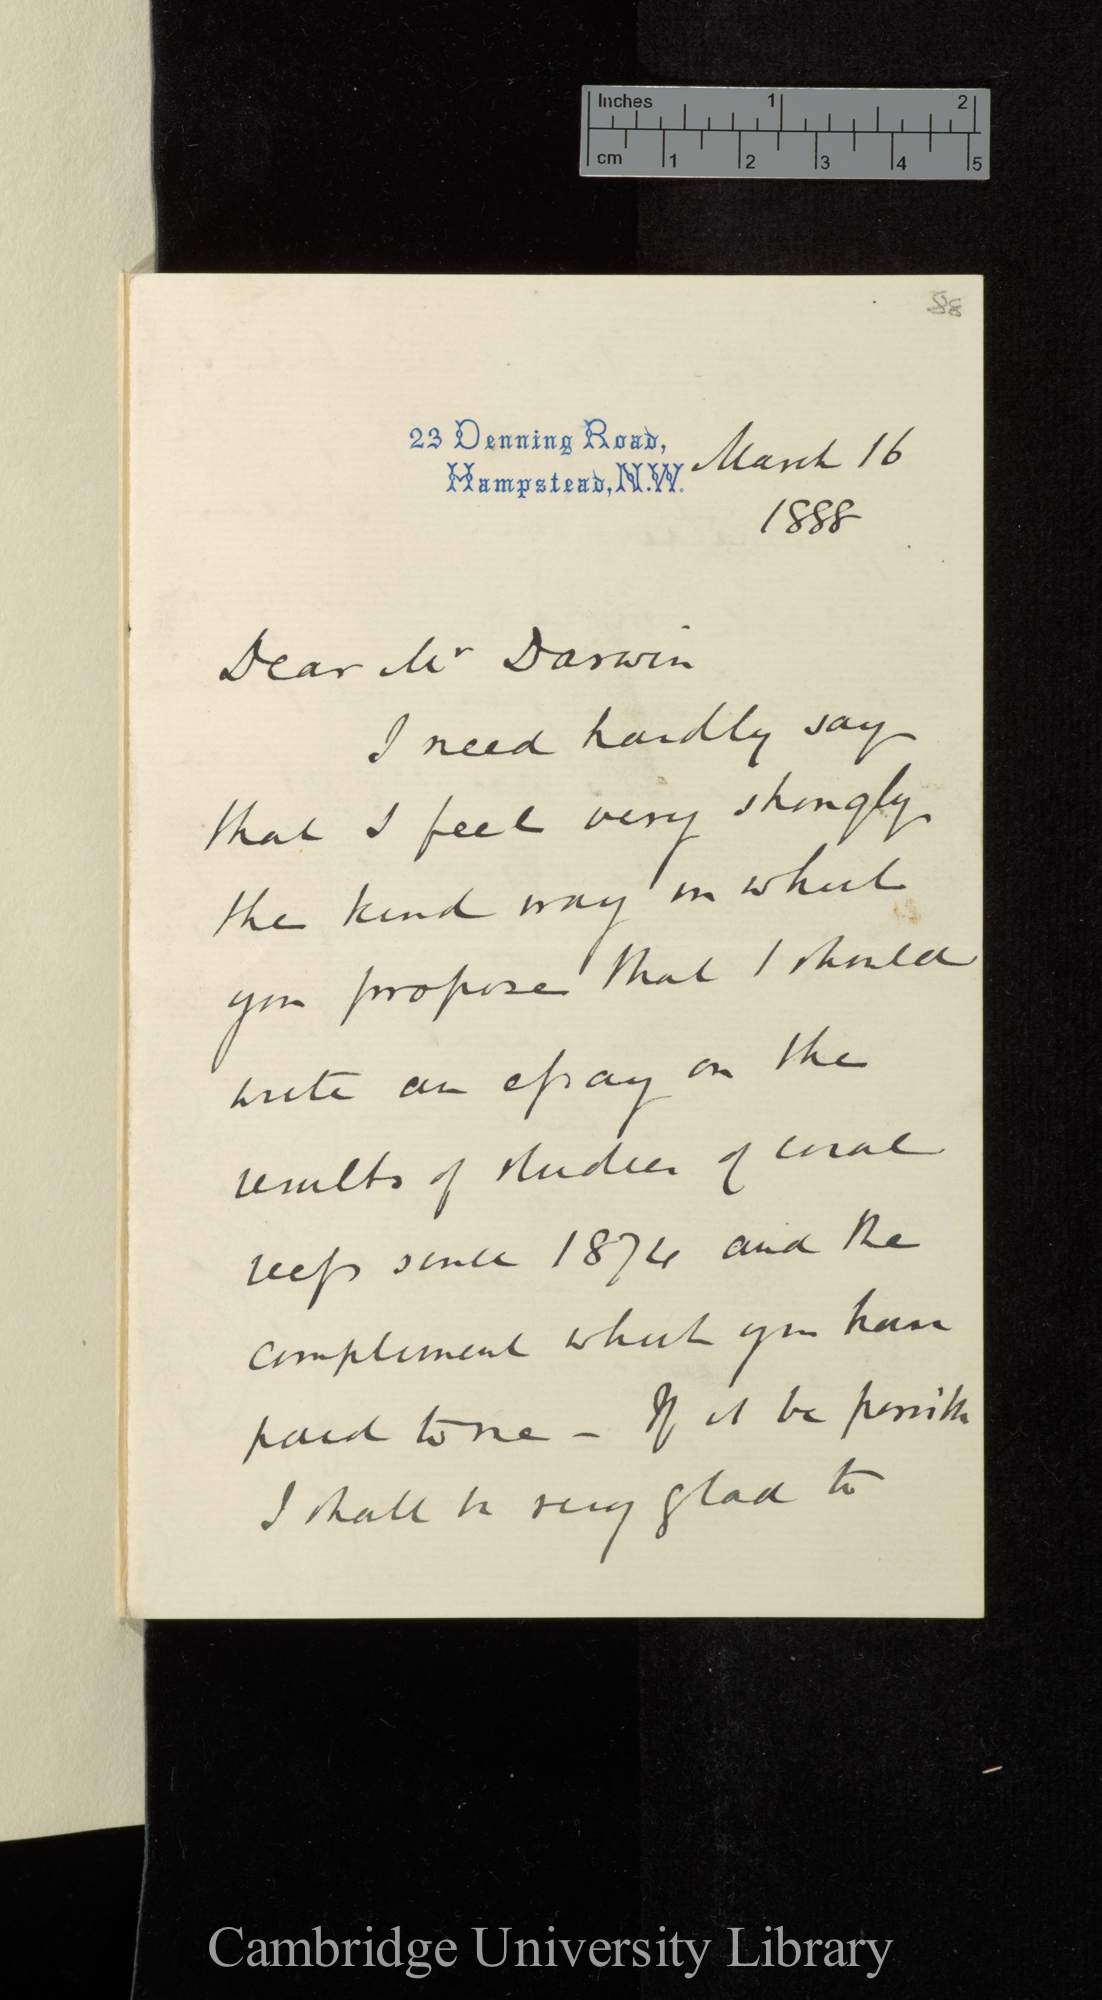 Inches 1 2
cm 1 2 3 4 5
58
23 Denning Road,
Hampstead, N.W.
March 16
1888
Dear Mr Darwin
I need hardly say
that I feel very strongly
the kind way in which
you propose that I should
write an essay on the
results of studies of coral
reefs since 1874 and the
compliment which you have
paid to me – If it be possible
I shall be very glad to
Cambridge University Library